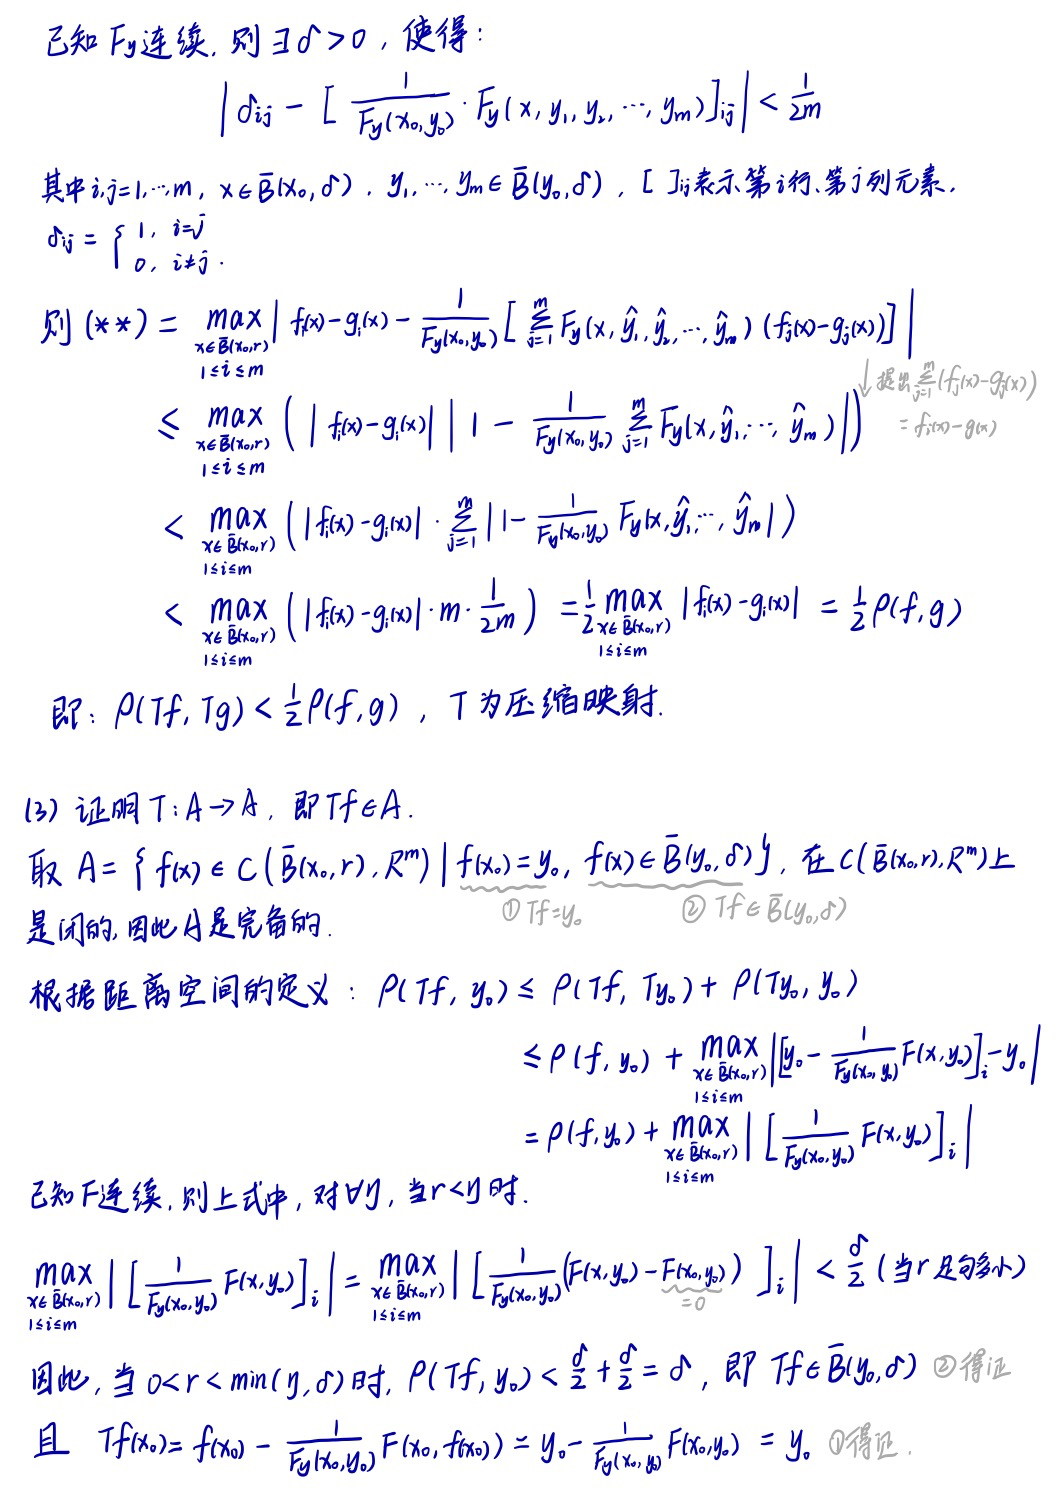 已知 Fy连续, 则 ∃ δ > 0, 使得:
| δij − [ 1/Fy(x₀,y₀) · Fy(x, y₁, y₂, ⋯, ym) ]ij | < 1/2m
其中 i,j=1,⋯,m, x∈B̄(x₀,δ), y₁,⋯,ym∈B̄(y₀,δ), [ ]ij表示第i行、第j列元素.
δij = { 1, i=j
0, i≠j.
则 (**) = max x∈B̄(x₀,r) 1≤i≤m | fi(x)−gi(x) − 1/Fy(x₀,y₀) [ Σ j=1 m Fy(x, ŷ₁, ŷ₂, ⋯, ŷm) (fj(x)−gj(x)) ] |
↓提出 Σ j=1 m (fj(x)−gj(x))
= fi(x)−g(x)
≤ max x∈B̄(x₀,r) 1≤i≤m ( | fi(x)−gi(x) | | 1 − 1/Fy(x₀,y₀) Σ j=1 m Fy(x, ŷ₁, ⋯, ŷm) | )
< max x∈B̄(x₀,r) 1≤i≤m ( | fi(x)−gi(x) | · Σ j=1 m | 1 − 1/Fy(x₀,y₀) Fy(x, ŷ₁, ⋯, ŷm | )
< max x∈B̄(x₀,r) 1≤i≤m ( | fi(x)−gi(x) | · m · 1/2m ) = 1/2 max x∈B̄(x₀,r) 1≤i≤m | fi(x)−gi(x) | = 1/2 ρ(f,g)
即: ρ(Tf, Tg) < 1/2 ρ(f,g), T为压缩映射.
(3) 证明 T: A→A, 即 Tf∈A.
取 A = { f(x) ∈ C( B̄(x₀,r), Rᵐ) | f(x₀)=y₀, f(x)∈B̄(y₀,δ) }, 在 C(B̄(x₀,r),Rᵐ)上
① Tf=y₀ ② Tf∈B̄(y₀,δ)
是闭的, 因此A是完备的.
根据距离空间的定义: ρ(Tf, y₀) ≤ ρ(Tf, Ty₀) + ρ(Ty₀, y₀)
≤ ρ(f, y₀) + max x∈B̄(x₀,r) 1≤i≤m | [ y₀ − 1/Fy(x₀,y₀) F(x,y₀) ]i − y₀ |
= ρ(f,y₀) + max x∈B̄(x₀,r) 1≤i≤m | [ 1/Fy(x₀,y₀) F(x,y₀) ]i |
已知F连续, 则上式中, 对∀η, 当r<η时.
max x∈B̄(x₀,r) 1≤i≤m | [ 1/Fy(x₀,y₀) F(x,y₀) ]i | = max x∈B̄(x₀,r) 1≤i≤m | [ 1/Fy(x₀,y₀) (F(x,y₀) − F(x₀,y₀)) ]i | < δ/2 (当r足够小)
=0
因此, 当 0<r<min(η,δ)时, ρ(Tf,y₀) < δ/2 + δ/2 = δ, 即 Tf∈B̄(y₀,δ) ②得证
且 Tf(x₀)= f(x₀) − 1/Fy(x₀,y₀) F(x₀,f(x₀)) = y₀ − 1/Fy(x₀,y₀) F(x₀,y₀) = y₀ ①得证.